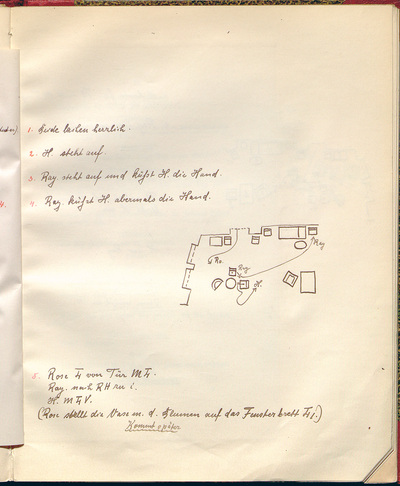 1. Beide lachen herzlich.
2. H. steht auf.
3. Ray steht auf und küßt H. die Hand.
4. Ray. küßt H. abermals die Hand.
Ro.
Ray
Ray
H.
5. Rose von Tür M
Ray. nach RH
H. M V.
(Rose stellt die Vase m. d. Blumen auf das Fensterbrett)
Kommt später